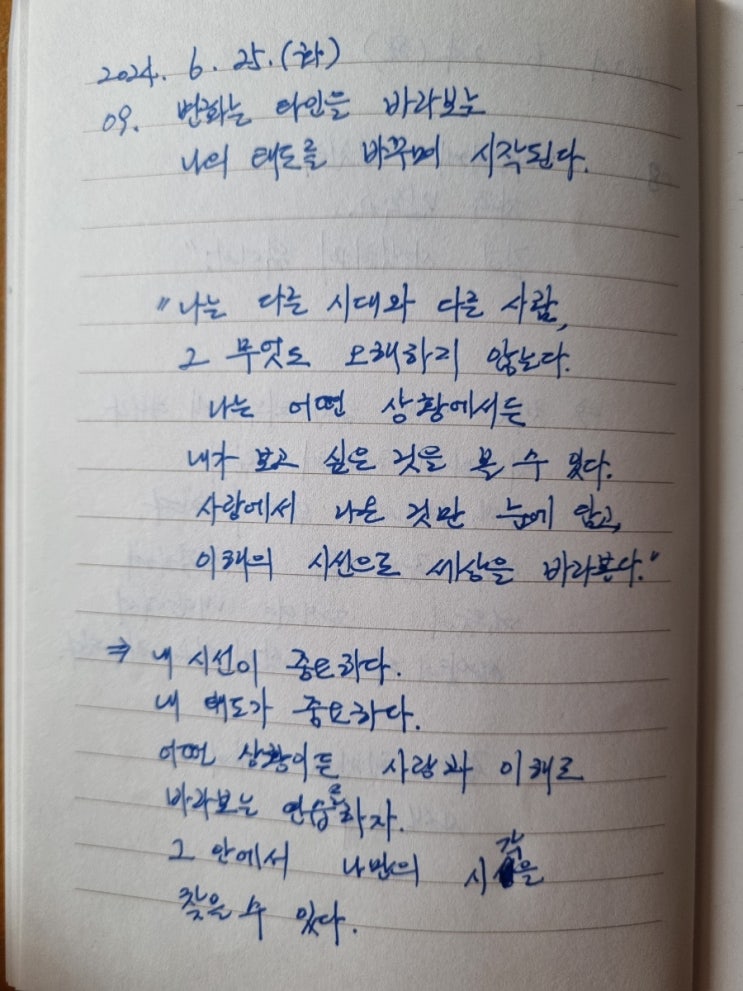 2024. 6. 25. (화)
09. 변화는 타인을 바라보는
나의 태도를 바꾸며 시작된다.
"나는 다른 시대와 다른 사람,
그 무엇도 오해하지 않는다.
나는 어떤 상황에서든
내가 보고 싶은 것을 볼 수 있다.
사랑에서 나온 것만 눈에 담고,
이해의 시선으로 세상을 바라본다."
⇒ 내 시선이 중요하다.
내 태도가 중요하다.
어떤 상황이든 사랑과 이해로
바라보는 연습을 하자.
그 안에서 나만의 시각을
찾을 수 있다.